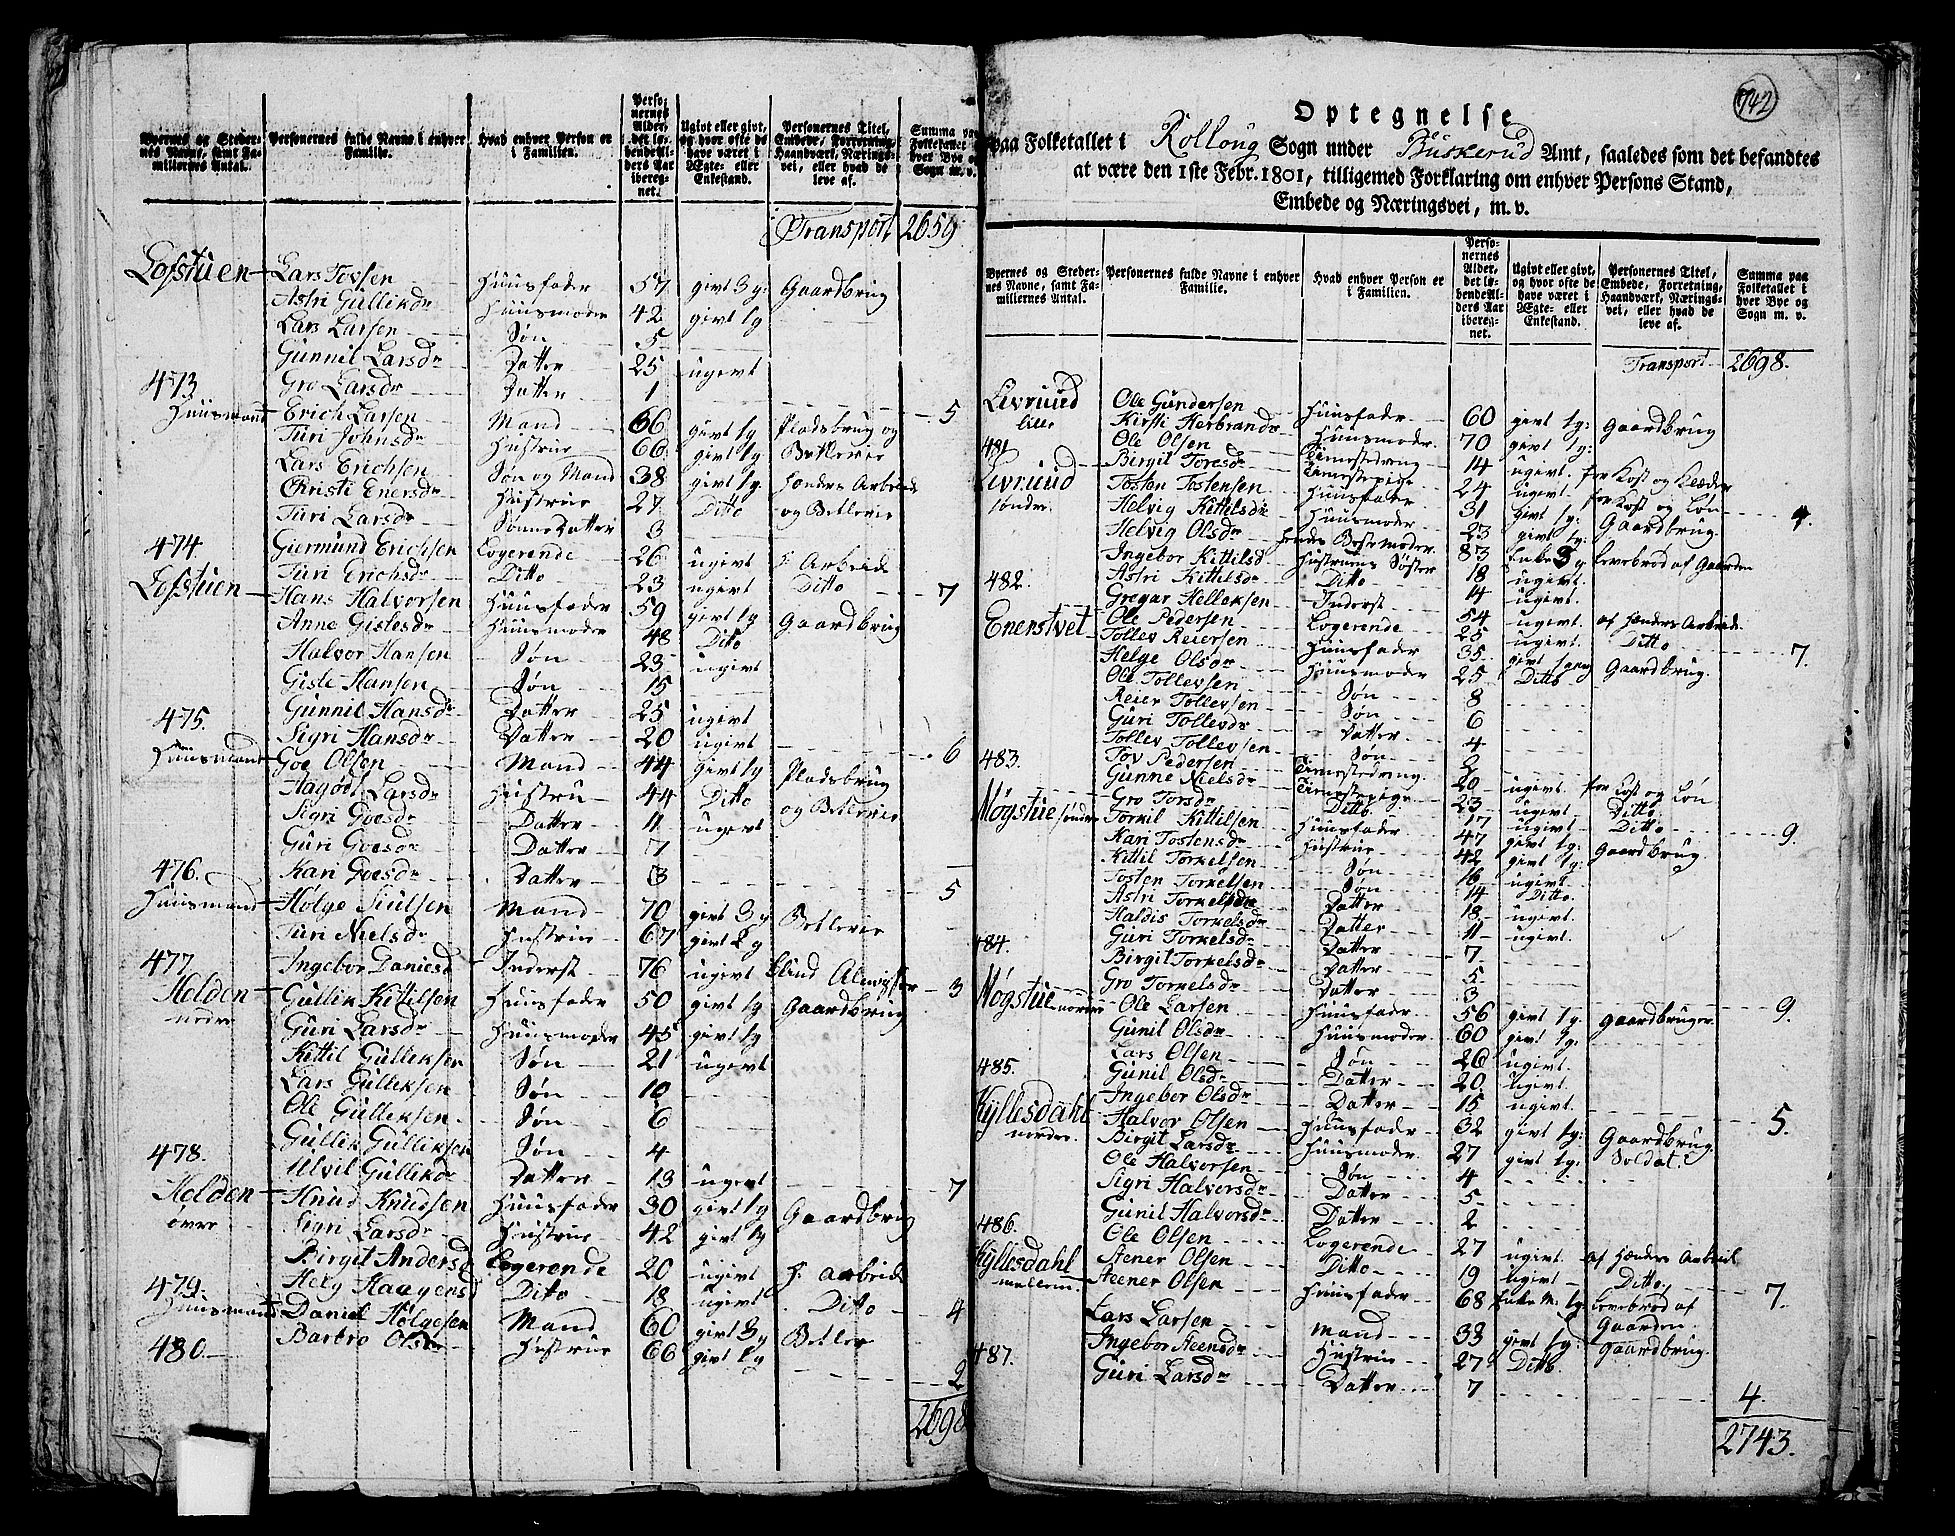 Byernes og Stedernes Navne, samt Familiernes Antal.
Personernes fulde Navne i enhver Familie.
Hvad enhver Person er i Familien.
Personernes Alder, det løbende Alders Aar iberegnet.
Ugivt eller givt, og hvor ofte de have været i Ægte- eller Enkestand.
Personernes Titel, Embede, Forretning, Haandværk, Næringsvei, eller hvad de leve af.
Summa paa Folketallet i hver Bye og Sogn m. v.
Transport 2659
Lofstuen Lars Tovsen Huusfader 57 givt 3 g: Gaardbrug
Astri Gulliksdr Huusmoder 42 givt 1 g
Lars Larsen Søn 5
Gunnil Larsdr Datter 25 ugivt
473 Gro Larsdr Datter 1 5
Huusmand Erich Larsen Mand 66 givt 1g Pladsbrug og
Turi Johnsdr Hustrue 66 givt 1g Betlerie
Lars Erichsen Søn og Mand 38 givt 1g Hænders Arbeide
Christi Enersdr Hustrue 27 Ditto og Betlerie
Turi Larsdr Sønne Datter 3
474. Giermund Erichsen Logerende 26 ugivt H: Arbeide
Turi Erichsdr Ditto 23 ugivt Ditto 7
Lofstuen Hans Halvorsen Huusfader 59 givt 1g Gaardbrug
Anne Gislesdr Huusmoder 48 Ditto
Halvor Hansen Søn 23 ugivt
Gisle Hansen Søn 15
Gunnil Hansdr Datter 25 ugivt
475. Sigri Hansdr Datter 20 ugivt 6
Huusmand Goe Olsen Mand 44 givt 1g Pladsbrug
Aagodt Larsdr Hustru 44 Ditto og Betlerie
Sigri Goesdr Datter 11 ugivt
Guri Goesdr Datter 7
476. Kari Goesdr Datter 3 5
Huusmand Holge Siulsen Mand 70 givt 3 g Betlerie
Turi Nielsdr Hustrue 67 givt 2 g
477 Ingebor Danielsd Inderst 76 ugivt blind 3
Helden nordre Gullik Kittilsen Huusfader 50 givt 1g Gaardbrug
Guri Larsdr Huusmoder 45 givt 1g
Kittil Gulleksen Søn 21 ugivt
Lars Gulleksen Søn 10
Ole Gulleksen Søn 6
Gullik Gulliksen Søn 4
478. Ulvil Gulliksdr Datter 13 ugivt 7
Helden øvre Knud Knudsen Huusfader 30 givt 1g Gaardbrug
Sigri Larsdr Hustrue 42 givt 1g
Birgit Andersd Logerende 20 ugivt H: Arbeide
479. Helg Haagensd Ditto 18 ugivt Ditto 4
Huusmand Daniel Holgesen Mand 60 givt 3g Betler
480. Barbro Olsdr Hustrue 66 givt 1 g 2
2698
742
Optegnelse
paa Folketallet i Rolloug Sogn under Buskerud Amt, saaledes som det befandtes
at være den 1ste Febr. 1801, tilligemed Forklaring om enhver Persons Stand,
Embede og Næringsvei, m. v.
Byernes og Stedernes Navne, samt Familiernes Antal.
Personernes fulde Navne i enhver Familie.
Hvad enhver Person er i Familien.
Personernes Alder, det løbende Alders Aar iberegnet.
Ugivt eller givt, og hvor ofte de have været i Ægte- eller Enkestand.
Personernes Titel, Embede, Forretning, Haandværk, Næringsvei, eller hvad de leve af.
Summa paa Folketallet i hver Bye og Sogn m. v.
Transport 2698.
Livruud lille Ole Gundersen Huusfader 60 givt 1g: Gaardbrug
Kirsti Herbrandr Huusmoder 70 givt 1g:
481 Ole Olsen Tienestedreng 14 ugivt for Kost og Klæder
Birgit Toresdr Tienestepige 24 ugivt for Kost og Løn 4.
Livruud søndre Tosten Tostensen Huusfader 31 givt 1g: Gaardbrug
Helvig Kittilsdr Huusmoder 23 givt 1g:
Helvig Olsdr Hendes Bestemoder 83 Enke 3 g Levebrød af Gaarden
Ingebor Kittilsd Hustruens Søster 18 ugivt
482 Astri Kittilsdr Ditto 14 ugivt
Gregar Helleksen Inderst 54 ugivt af Hænders Arbeide
Ole Pedersen Logerende 25 ugivt Ditto 7.
Enerstvet Tollev Reiersen Huusfader 35 givt 1 gang Gaardbrug
Helge Olsdr Huusmoder 25 Ditto
Ole Tollevsen Søn 8
Reier Tollevsen Søn 6
Guri Tollevdr Datter 4
Tollev Tollevsen Søn 2
483. Tov Pedersen Tienestedreng 20 ugivt for Kost og Løn
Gunne Nielsdr Tienestepige 23 ugivt Ditto
Gro Torsdr Ditto 17 ugivt Ditto 9.
Møgstue søndre Torkil Kittilsen Huusfader 47 givt 1g: Gaardbrug
Kari Tostensdr Hustrue 42 givt 1g:
Kittil Torkelsen Søn 16 ugivt
Tosten Torkelsen Søn 14 Ditto
Astri Torkelsdr Datter 18 ugivt
Haldis Torkelsdr Datter 11 ugivt
484. Guri Torkelsdr Datter 7
Birgit Torkelsdr Datter 5
Gro Torkelsdr Datter 3 9.
Møgstue nordre Ole Larsen Huusfader 56 givt 1g: Gaardbruger
Gunil Olsdr Huusmoder 60 givt 1g:
Lars Olsen Søn 26 ugivt
485. Gunil Olsdr Datter 20 ugivt
Ingebor Olsdr Datter 15 ugivt 5.
Kyllesdahl nordre Halvor Olsen Huusfader 32 givt 1g: Gaardbrug
Birgit Larsdr Huusmoder 27 givt 1g: Soldat
Ole Halvorsen Søn 4
Sigri Halvorsdr Datter 5
Gunil Halvorsdr Datter 2
486. Ole Olsen Logerende 27 ugivt af Hænders Arbeid
Stener Olsen Ditto 19 ugivt Ditto 7.
Kyllesdahl mellem Steener Olsen Huusfader 68 Enke M. 1g: Levebrød af Gaarden
Lars Larsen Mand 33 givt 1g: Gaardbrug
487. Ingebor Steensdr Hustrue 27 Ditto
Guri Larsdr Datter 7 4.
2743.